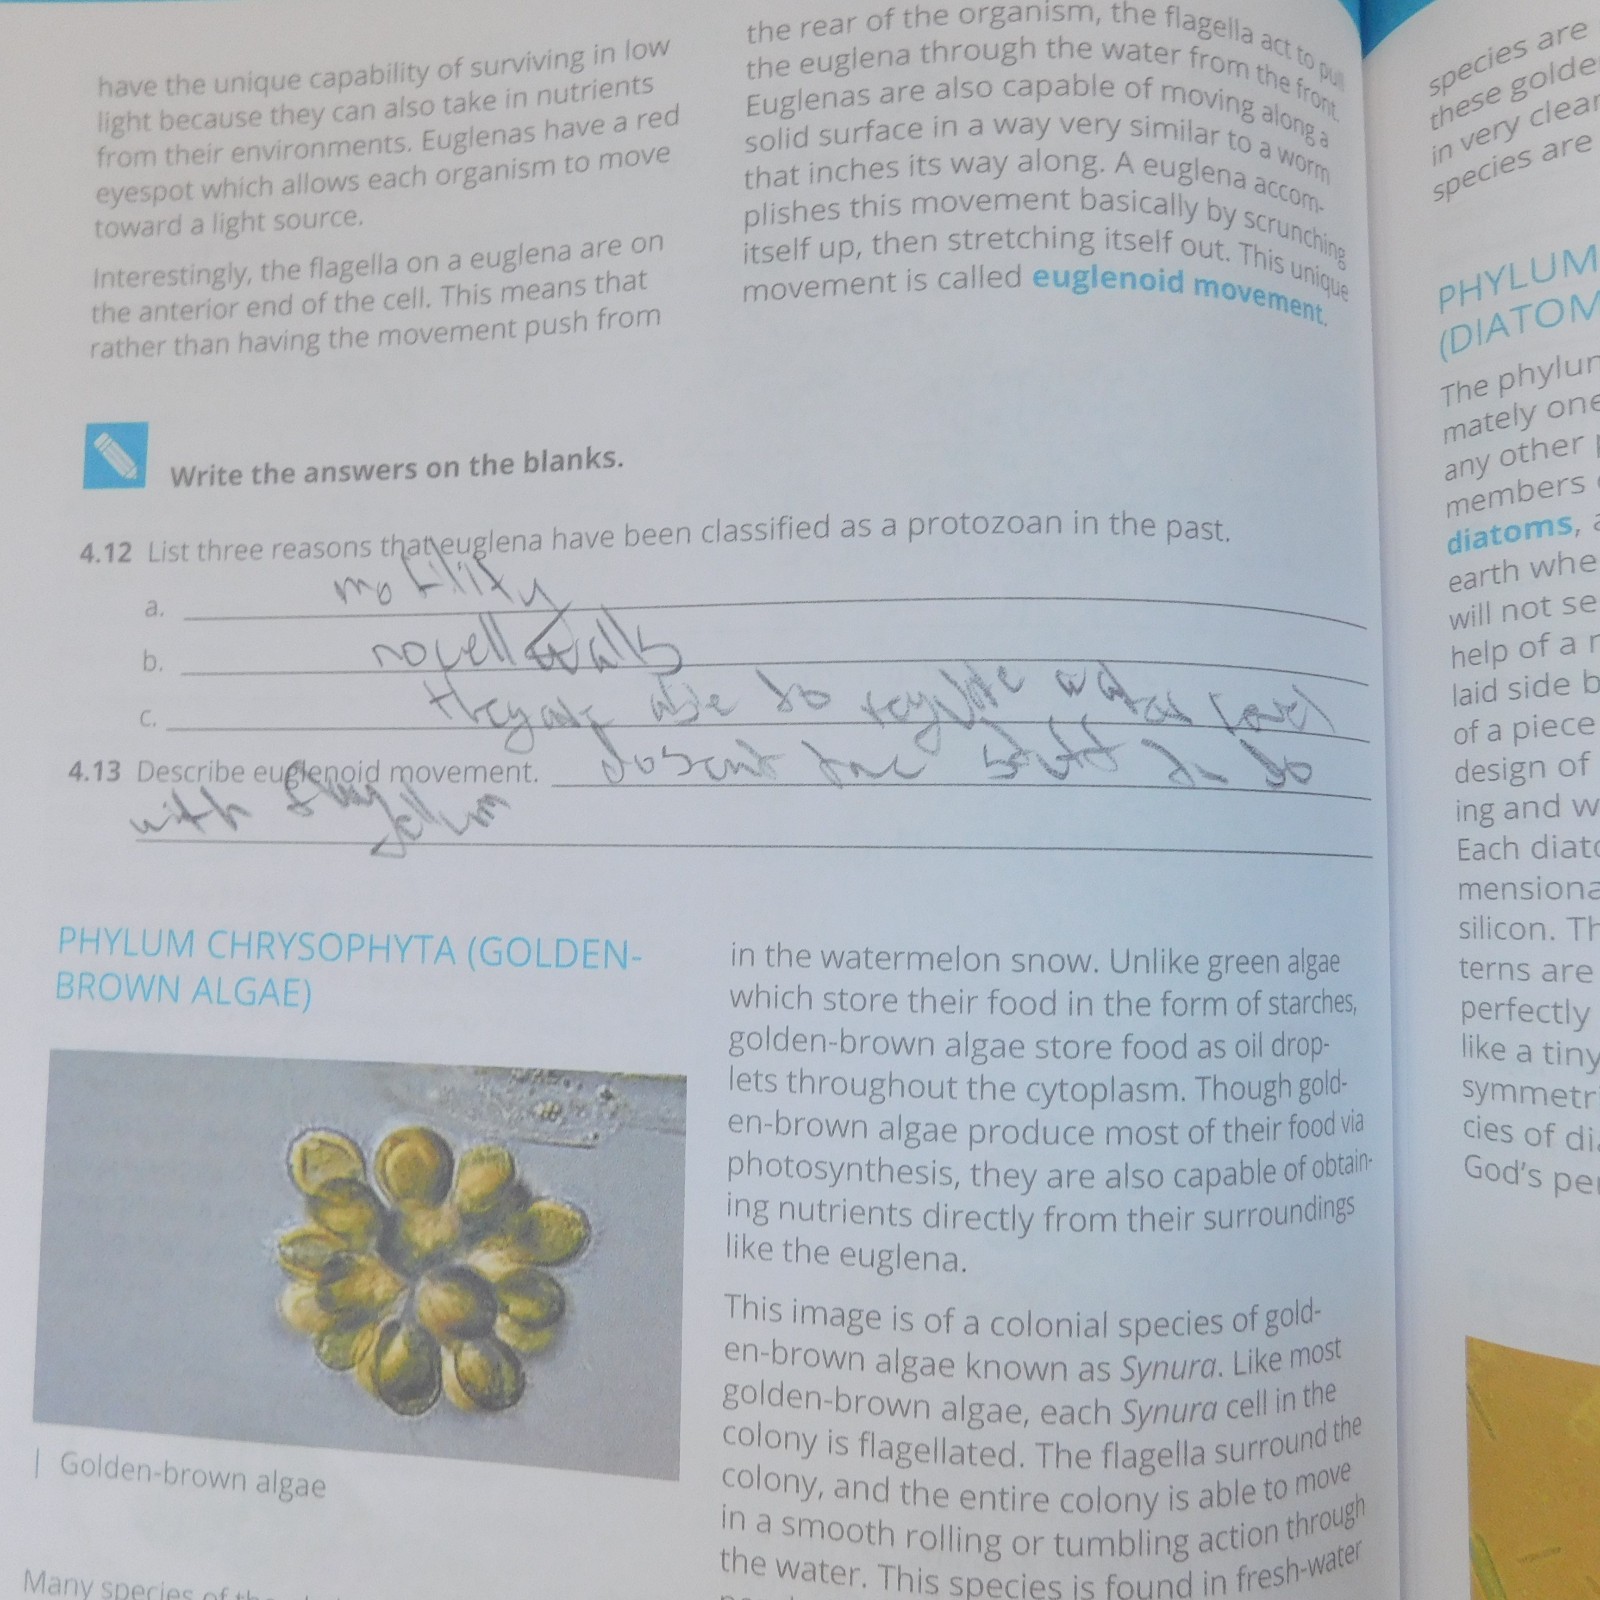 have the unique capability of surviving in low
light because they can also take in nutrients
from their environments. Euglenas have a red
eyespot which allows each organism to move
toward a light source.
Interestingly, the flagella on a euglena are on
the anterior end of the cell. This means that
rather than having the movement push from
the rear of the organism, the flagella act to pull
the euglena through the water from the front.
Euglenas are also capable of moving along a
solid surface in a way very similar to a worm
that inches its way along. A euglena accom-
plishes this movement basically by scrunching
itself up, then stretching itself out. This unique
movement is called euglenoid movement.
Write the answers on the blanks.
4.12 List three reasons that euglena have been classified as a protozoan in the past.
a. motility
b. no cell walls
c. they are able to regulate water level
4.13 Describe euglenoid movement. to
with
PHYLUM CHRYSOPHYTA (GOLDEN-
BROWN ALGAE)
Golden-brown algae
Many species of
in the watermelon snow. Unlike green algae
which store their food in the form of starches,
golden-brown algae store food as oil drop-
lets throughout the cytoplasm. Though gold-
en-brown algae produce most of their food via
photosynthesis, they are also capable of obtain-
ing nutrients directly from their surroundings
like the euglena.
This image is of a colonial species of gold-
en-brown algae known as Synura. Like most
golden-brown algae, each Synura cell in the
colony is flagellated. The flagella surround the
colony, and the entire colony is able to move
in a smooth rolling or tumbling action through
the water. This species is found in fresh-water
species are
these golde
in very clear
species are
PHYLUM
(DIATOM
The phylum
mately one
any other
members
diatoms,
earth whe
will not se
help of a
laid side b
of a piece
design of
ing and w
Each diato
mensiona
silicon. Th
terns are
perfectly
like a tiny
symmetr
cies of di
God's per